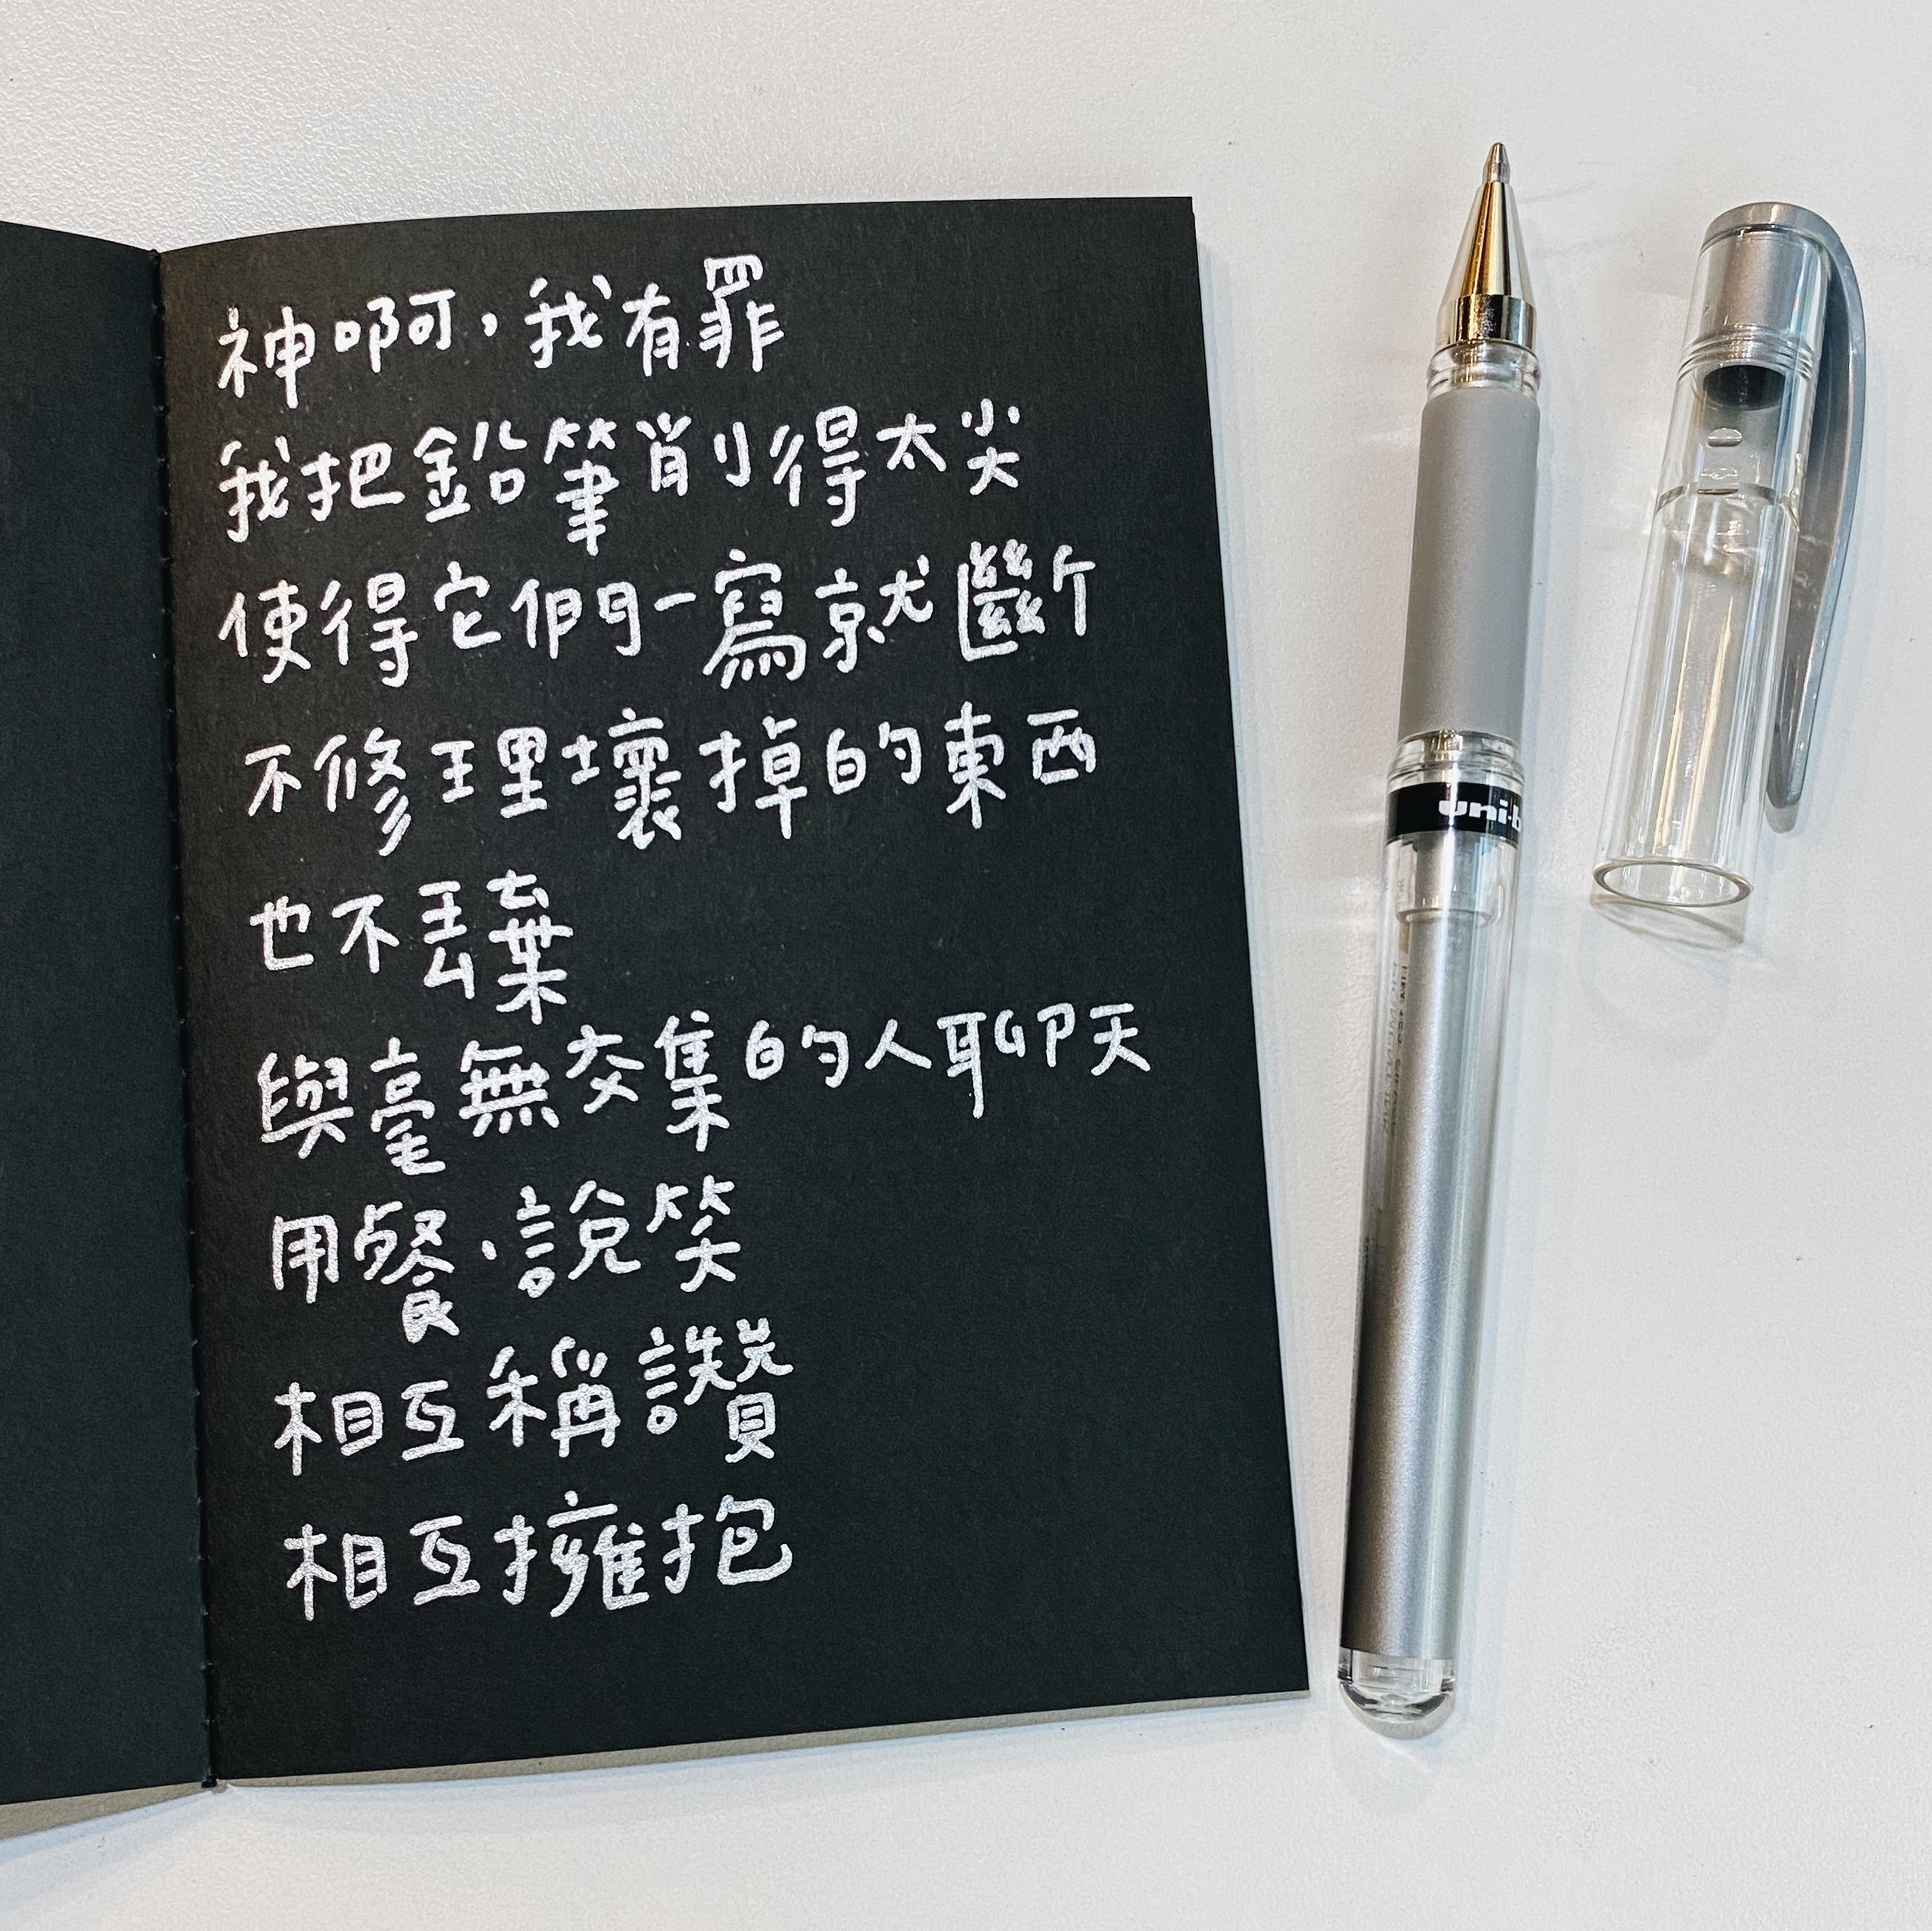 神啊，我有罪
我把鉛筆削得太尖
使得它們一寫就斷
不修理壞掉的東西
也不丟棄
與毫無交集的人聊天
用餐、說笑
相互稱讚
相互擁抱
uni-b